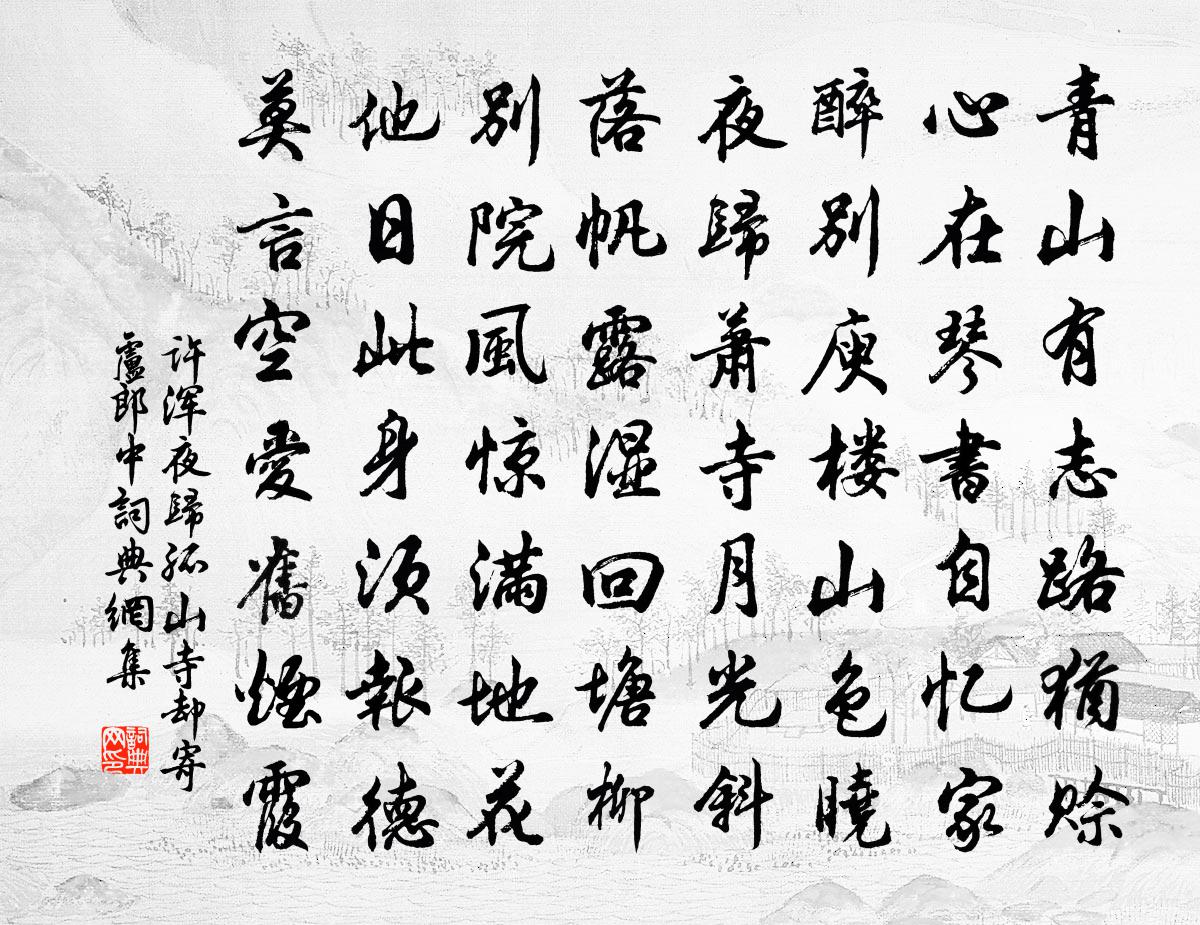 青山有志路猶賒
心在琴書自忆家
醉别庾楼山色曉
夜歸蕭寺月光斜
落帆露湿回塘柳
别院風惊满地花
他日此身须報德
莫言空愛舊煙霞
许浑夜歸孤山寺却寄
盧郎中詞典網集
詞典
网印